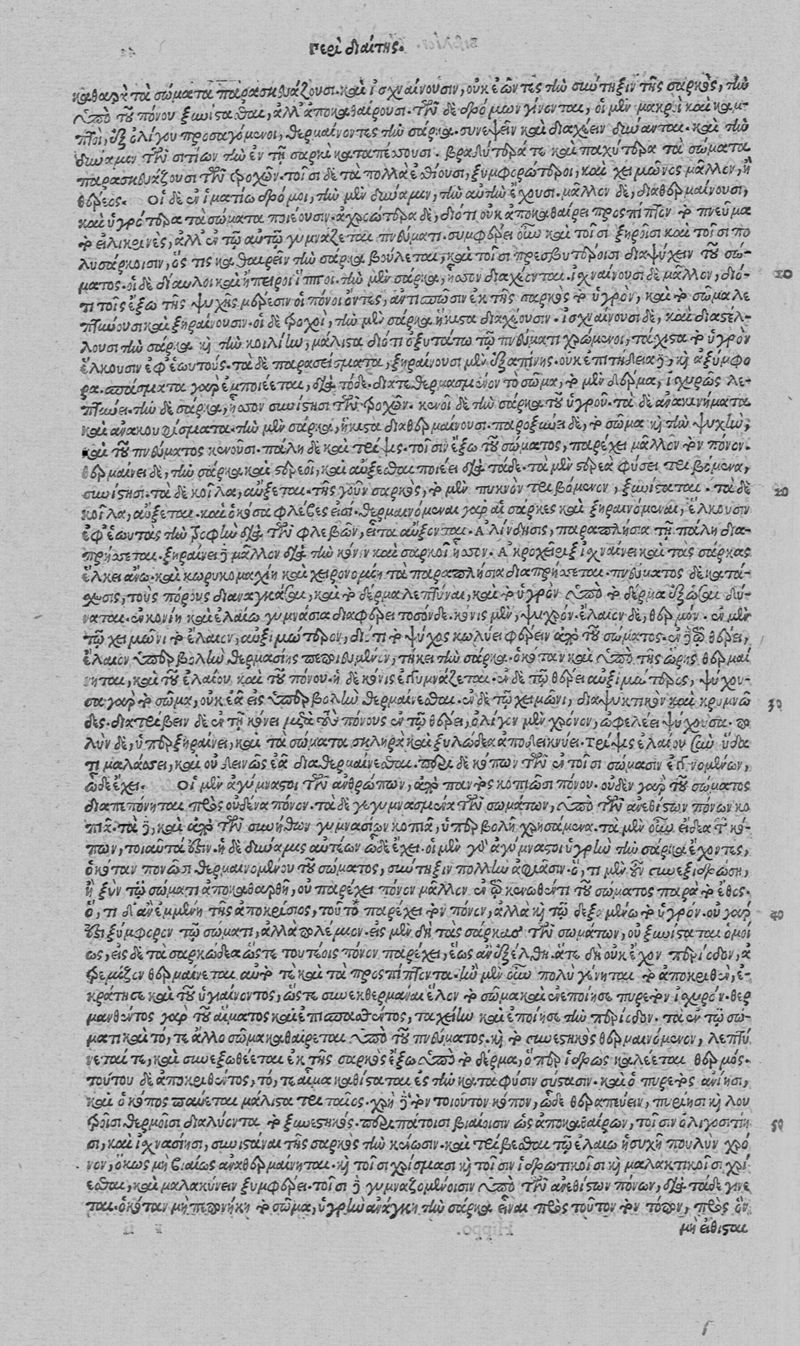 περὶ διαίτης.
καθαρὰ τὰ σώματα παρασκευάζουσι. καὶ ἰσχναίνουσιν, οὐκ ἐῶντες τὴν σύντηξιν τῆς σαρκὸς, τὴν
ὑπὸ τοῦ πόνου ξυνίστασθαι, ἀλλ' ἀποκαθαίρουσι. τῶν δὲ δρόμων γίνονται, οἱ μὲν μακροὶ καὶ καμ-
πτοὶ, ἐξ ὀλίγου προσαγόμενοι, θερμαίνοντες τὴν σάρκα. συνεψεῖν καὶ διαχέειν δύνανται. καὶ τὴν
δύναμιν τῶν σιτίων τὴν ἐν τῇ σαρκὶ καταπέσσουσι. βραδύτερά τε καὶ παχύτερα τὰ σώματα
παρασκευάζουσι τῶν τροχῶν. τοῖσι δὲ τὰ πολλὰ ἐσθίουσι, ξυμφερώτεροι, καὶ χειμῶνος μᾶλλον, ἢ
θέρεος. οἱ δὲ ἐν ἱματίῳ δρόμοι, τὴν μὲν δύναμιν, τὴν αὐτὴν ἔχουσι. μᾶλλον δὲ, διαθερμαίνουσι,
καὶ ὑγρότερα τὰ σώματα ποιέουσιν. ἀχροώτερα δὲ, διότι οὐκ ἀποκαθαίρει προσπῖπτον τὸ πνεῦμα
τὸ εἰλικρινὲς, ἀλλ' ἐν τῷ αὐτῷ γυμνάζεται πνεύματι. συμφέρει οὖν καὶ τοῖσι ξηροῖσι καὶ τοῖσι πο
λυσάρκοισιν, ὅς τις καθαιρεῖν τὴν σάρκα βούλεται, καὶ τοῖσι πρεσβυτέροισι διὰ ψύχειν τοῦ σώ-
ματος. οἱ δὲ δίαυλοι καὶ ἠπείροι ἵπποι. τὴν μὲν σάρκα, ἧσσον διαχέονται. ἰσχναίνουσι δὲ μᾶλλον, διό- 10
τι τοῖς ἔξω τῆς ψυχῆς μέρεσιν οἱ πόνοι ὄντες, ἀντισπῶσιν ἐκ τῆς σαρκὸς τὸ ὑγρὸν, καὶ τὸ σῶμα λε
πτύνουσι καὶ ξηραίνουσιν. οἱ δὲ τροχοὶ, τὴν μὲν σάρκα, ἥκιστα διαχέουσιν. ἰσχναίνουσι δὲ, καὶ διαστέλ-
λουσι τὴν σάρκα καὶ τὴν κοιλίην, μάλιστα διότι ὀξυτάτῳ τῷ πνεύματι χρώμενοι, τάχιστα τὸ ὑγρὸν
ἕλκουσιν ἐφ' ἑωυτούς. τὰ δὲ παρασείσματα, ξηραίνουσι μὲν ἐξαπίνης. οὐκ ἐπιτήδεια δὲ, καὶ ἀξύμφο
ρα. σπάσματα γὰρ ἐμποιέεται, διὰ τόδε. διατεθερμασμένον τὸ σῶμα, τὸ μὲν δέρμα, ἰσχυρῶς λε-
πτύνει. τὴν δὲ σάρκα, ἧσσον συνίστησι τῶν τροχῶν. κενοῖ δὲ τὴν σάρκα τοῦ ὑγροῦ. τὰ δὲ ἀνακινήματα
καὶ ἀνακουφίσματα. τὴν μὲν σάρκα, ἥκιστα διαθερμαίνουσι. παροξύνει δὲ, τὸ σῶμα καὶ τὴν ψυχὴν,
καὶ τοῦ πνεύματος κενοῦσι. πάλη δὲ καὶ τρίψις. τοῖσιν ἔξω τοῦ σώματος, παρέχει μᾶλλον τὸν πόνον.
θερμαίνει δὲ, τὴν σάρκα καὶ στερεοῖ, καὶ αὔξεσθαι ποιέει διὰ τάδε. τὰ μὲν στερεὰ φύσει τριβόμενα,
συνίστησι. τὰ δὲ κοῖλα, αὔξεται. τῆς γοῦν σαρκὸς, τὸ μὲν πυκνὸν τριβόμενον, ξυνίσταται. τὰ δὲ 20
κοῖλα, αὔξεται. καὶ ὁκόσα φλέβες εἰσί. θερμαινόμεναι γὰρ αἱ σάρκες καὶ ξηραινόμεναι, ἕλκουσιν
ἐφ' ἑωυτὰς τὴν τροφὴν διὰ τῶν φλεβῶν, εἶτα αὔξονται. Ἀλίνδησις, παραπλήσια τῇ πάλῃ δια-
πρήσσεται. ξηραίνει δὲ μᾶλλον διὰ τὴν κόνιν καὶ σαρκοῖ ἧσσον. Ἀκροχειρίξ ἰσχναίνει καὶ τὰς σάρκας
ἕλκει ἄνω. καὶ κωρυκομαχίη καὶ χειρονομίη τὰ παραπλήσια διαπρήσσεται. πνεύματος δὲ κατά-
σχεσις, τοὺς πόρους διαναγκάσαι, καὶ τὸ δέρμα λεπτῦναι, καὶ τὸ ὑγρὸν ὑπὸ τὸ δέρμα ἐξῶσαι δύ-
ναται. ἐν κονίῃ καὶ ἐλαίῳ γυμνάσια διαφέρει τοσόνδε. κόνις μὲν, ψυχρὸν. ἔλαιον δὲ, θερμόν. ἐν μὲν
τῷ χειμῶνι τὸ ἔλαιον, αὐξιμώτερον, διότι τὸ ψῦχος κωλύει φέρειν ἀπὸ τοῦ σώματος. ἐν δὲ τῷ θέρει,
ἔλαιον ὑπερβολὴν θερμασίης πεποιευμένον, τήκει τὴν σάρκα. ὁκόταν καὶ ὑπὸ τῆς ὥρης θερμαί
νηται, καὶ τοῦ ἐλαίου, καὶ τοῦ πόνου. ἡ δὲ κόνις ἐγγυμνάζεται. ἐν δὲ τῷ θέρει αὐξιμώτερος, ψύχου-
σα γὰρ τὸ σῶμα, οὐκ ἐᾷ εἰς ὑπερβολὴν θερμαίνεσθαι. ἐν δὲ τῷ χειμῶνι, διαψυκτικὸν καὶ κρυμνῶ 30
δες. διατρίβειν δὲ ἐν τῇ κόνει μετὰ τοὺς πόνους ἐν τῷ θέρει, ὀλίγον μὲν χρόνον, ὠφελέει ψύχουσα. πο
λὺν δὲ, ὑπερξηραίνει, καὶ τὰ σώματα σκληρὰ καὶ ξυλώδεα ἀποδεικνύει. τρίψις ἐλαίου σὺν ὕδα
τι μαλάσσει, καὶ οὐ δεινῶς ἐᾷ διαθερμαίνεσθαι. περὶ δὲ κόπων τῶν ἐν τοῖσι σώμασιν ἐγγινομένων,
ὧδε ἔχει. Οἱ μὲν ἀγύμναστοι τῶν ἀνθρώπων, ἀπὸ παντὸς κοπιῶσι πόνου. οὐδὲν γὰρ τοῦ σώματος
διαπεπόνηται πρὸς οὐδένα πόνον. τὰ δὲ γεγυμνασμένα τῶν σωμάτων, ὑπὸ τῶν ἀνεθίστων πόνων κο
πιᾷ. τὰ δὲ, καὶ ἀπὸ τῶν συνήθων γυμνασίων κοπιᾷ, ὑπερβολῇ χρησάμενα. τὰ μὲν οὖν εἴδεα τῶν κό-
πων, τοιαῦτά ἐστιν. ἡ δὲ δύναμις αὐτέων ὧδε ἔχει. οἱ μὲν γὰρ ἀγύμναστοι ὑγρὴν τὴν σάρκα ἔχοντες,
ὁκόταν πονῶσι θερμαινομένου τοῦ σώματος, σύντηξιν πολλὴν ἀφιᾶσιν. ὅ, τι μὲν οὖν συνεξιδρώσῃ,
ἢ ξὺν τῷ σώματι ἀποκαθαρθῇ, οὐ παρέχει πόνον μᾶλλον ἐν τῷ κενωθέντι τοῦ σώματος παρὰ τὸ ἔθος.
ὅ, τι δ' ἂν ἐμμένῃ τῆς ἀποκρίσιος, τοῦτο παρέχει τὸν πόνον, ἀλλὰ καὶ τῷ δεξαμένῳ τὸ ὑγρόν. οὐ γὰρ 40
ἐστι ξύμφορον τῷ σώματι, ἀλλὰ πολέμιον. εἰς μὲν δὴ τὰς σάρκας τῶν σωμάτων, οὐ ξυνίσταται ὁμοί
ως, εἰς δὲ τὰ σαρκώδεα ὥς τε τουτέοις πόνον παρέχει, ἕως ἂν ἐξέλθῃ. ἅτε δὴ οὐκ ἔχον περίοδον, ἀ
τρεμίζον θερμαίνεται αὐτό τε καὶ τὰ προσπίπτοντα. ἢν μὲν οὖν πολὺ γένηται τὸ ἀποκριθὲν, ἐ-
κράτησε καὶ τοῦ ὑγιαίνοντος, ὥς τε συνεκθερμαίνει ὅλον τὸ σῶμα καὶ ἐνεποίησε πυρετὸν ἰσχυρόν. θερ
μανθέντος γὰρ τοῦ αἵματος καὶ ἐπισπασθέντος, ταχείην καὶ ἐποίησε τὴν περίοδον. τὰ ἐν τῷ σώ-
ματι καὶ τό, τε ἄλλο σῶμα καθαίρεται ὑπὸ τοῦ πνεύματος. καὶ τὸ συνεστηκὸς θερμαινόμενον, λεπτύ
νεταί τε, καὶ συνεξωθέεται ἐκ τῆς σαρκὸς ἔξω ὑπὸ τὸ δέρμα, ὅπερ ἱδρὼς καλέεται θερμός.
τούτου δὲ ἀποκριθέντος, τό, τε αἷμα καθίσταται ἐς τὴν κατὰ φύσιν σύστασιν. καὶ ὁ πυρετὸς ἀνίησι,
καὶ ὁ κόπος παύεται μάλιστα τριταῖος. χρὴ δὲ τὸν τοιοῦτον κόπον, ὧδε θεραπεύειν, πυρίῃσι καὶ λου
τροῖσι θερμοῖσι διαλύοντα τὸ ξυνεστηκός. περιπάτοισι βιαίοισιν ὡς ἀποκαθαίρων, τοῖσιν ὀλιγοσιτίῃ 50
σι, καὶ ἰσχνασίῃσι, συνιστάναι τῆς σαρκὸς τὴν κένωσιν. καὶ τρίβεσθαι τῷ ἐλαίῳ ἡσυχῇ πουλὺν χρό
νον, ὅκως μὴ βιαίως ἀναθερμαίνηται. καὶ τοῖσι χρίσμασι καὶ τοῖσιν ἱδρωτικοῖσι καὶ μαλακτικοῖσι χρί
εσθαι, καὶ μαλακύνειν ξυμφέρει. τοῖσι δὲ γυμναζομένοισιν ὑπὸ τῶν ἀνεθίστων πόνων, διὰ τάδε γίνε
ται. ὁκόταν μὴ πεπονήκῃ τὸ σῶμα, ὑγρὴν ἀνάγκη τὴν σάρκα εἶναι πρὸς τοῦτον τὸν τόπον, πρὸς ὃν
μὴ εἴθισται